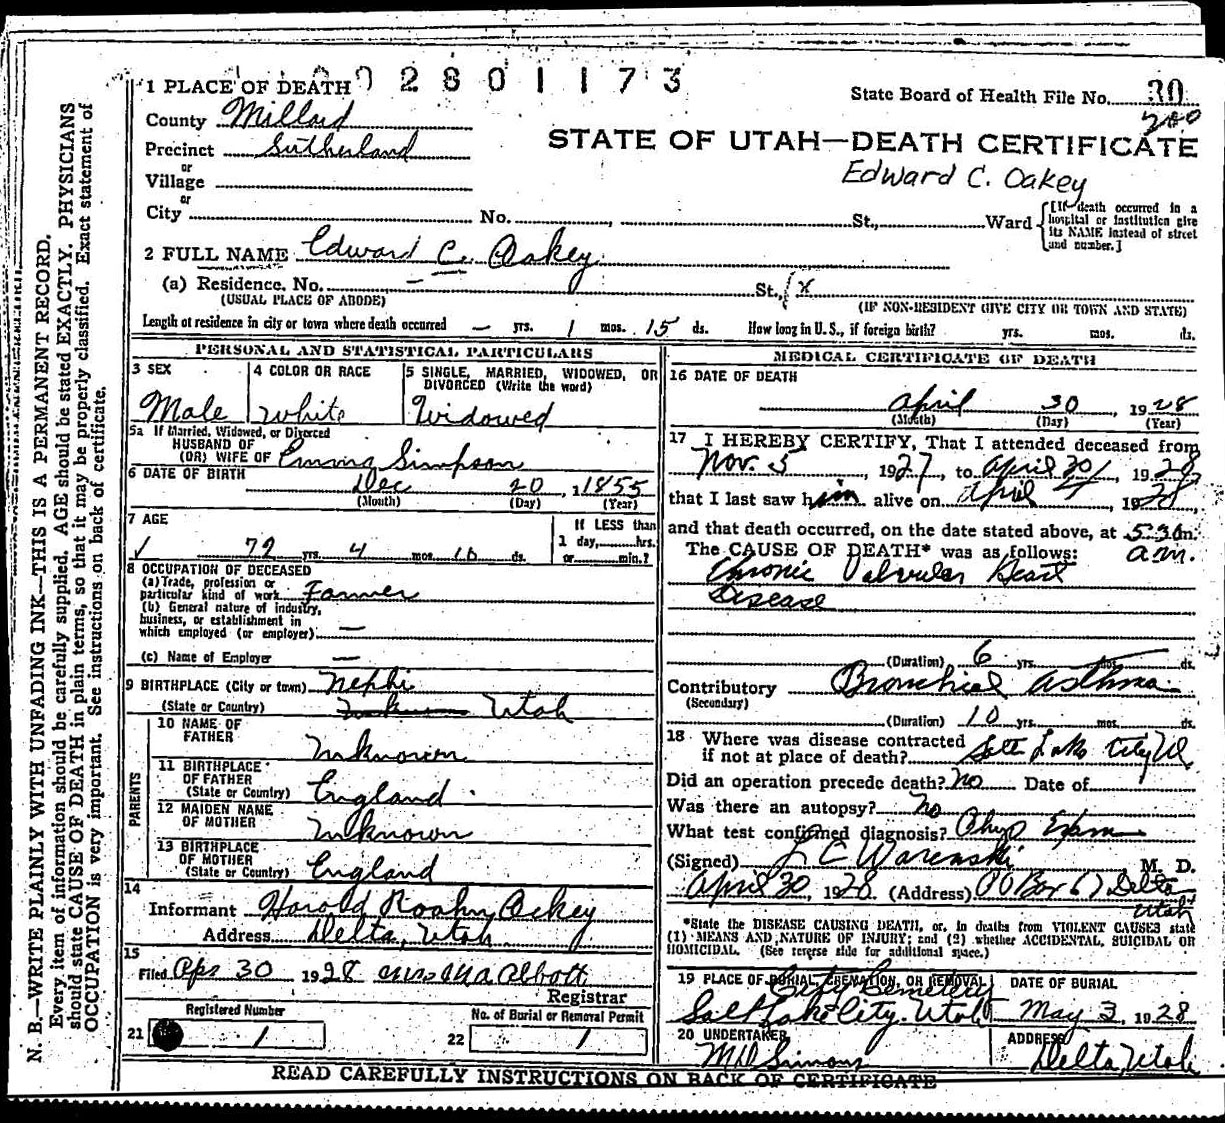 0 0 2 8 0 1 1 7 3
1 PLACE OF DEATH
State Board of Health File No. 30
200
County Millard
Precinct Sutherland
STATE OF UTAH—DEATH CERTIFICATE
Edward C. Oakey
or
Village
or
City No. St., Ward
[If death occurred in a hospital or institution give its NAME instead of street and number.]
2 FULL NAME Edward C. Oakey
(a) Residence. No. — St., x
(USUAL PLACE OF ABODE) (IF NON-RESIDENT GIVE CITY OR TOWN AND STATE)
Length of residence in city or town where death occurred — yrs. 1 mos. 15 ds. How long in U. S., if foreign birth? yrs. mos. ds.
PERSONAL AND STATISTICAL PARTICULARS
3 SEX
Male
4 COLOR OR RACE
White
5 SINGLE, MARRIED, WIDOWED, OR DIVORCED (Write the word)
Widowed
5a If Married, Widowed, or Divorced
HUSBAND OF
(OR) WIFE OF Emma Simpson
6 DATE OF BIRTH
Dec 20, 1855
(Month) (Day) (Year)
7 AGE
72 yrs. 4 mos. 10 ds.
If LESS than
1 day, hrs.
or min.?
8 OCCUPATION OF DECEASED
(a) Trade, profession or
particular kind of work Farmer
(b) General nature of industry,
business, or establishment in
which employed (or employer) —
(c) Name of Employer —
9 BIRTHPLACE (City or town) Nephi
(State or Country) Utah
PARENTS
10 NAME OF
FATHER Unknown
11 BIRTHPLACE
OF FATHER
(State or Country) England
12 MAIDEN NAME
OF MOTHER Unknown
13 BIRTHPLACE
OF MOTHER
(State or Country) England
14
Informant Harold
Address Delta, Utah
15
Filed Apr 30 1928 Abbott
Registrar
Registered Number
21 1
No. of Burial or Removal Permit
22 1
MEDICAL CERTIFICATE OF DEATH
16 DATE OF DEATH
April 30, 1928
(Month) (Day) (Year)
17 I HEREBY CERTIFY, That I attended deceased from
Nov. 5, 1927, to April 30, 1928
that I last saw him alive on April, 1928,
and that death occurred, on the date stated above, at 5:30 m.
a.m.
The CAUSE OF DEATH* was as follows:
Chronic Valvular Heart
Disease
(Duration) 6 yrs. mos. ds.
Contributory Bronchial Asthma
(Secondary)
(Duration) 10 yrs. mos. ds.
18 Where was disease contracted
if not at place of death? Salt Lake City Ut
Did an operation precede death? No Date of
Was there an autopsy? No
What test confirmed diagnosis? Phys Exam
(Signed) L C Warenski M. D.
April 30, 1928 (Address) P O Box 67 Delta
Utah
*State the DISEASE CAUSING DEATH, or, in deaths from VIOLENT CAUSES state
(1) MEANS AND NATURE OF INJURY; and (2) whether ACCIDENTAL, SUICIDAL OR
HOMICIDAL. (See reverse side for additional space.)
19 PLACE OF BURIAL, CREMATION, OR REMOVAL
City Cemetery
Salt Lake City, Utah
DATE OF BURIAL
May 3, 1928
20 UNDERTAKER
Simons
ADDRESS
Delta, Utah
READ CAREFULLY INSTRUCTIONS ON BACK OF CERTIFICATE
N. B.—WRITE PLAINLY WITH UNFADING INK—THIS IS A PERMANENT RECORD.
Every item of information should be carefully supplied. AGE should be stated EXACTLY. PHYSICIANS
should state CAUSE OF DEATH in plain terms, so that it may be properly classified. Exact statement of
OCCUPATION is very important. See instructions on back of certificate.